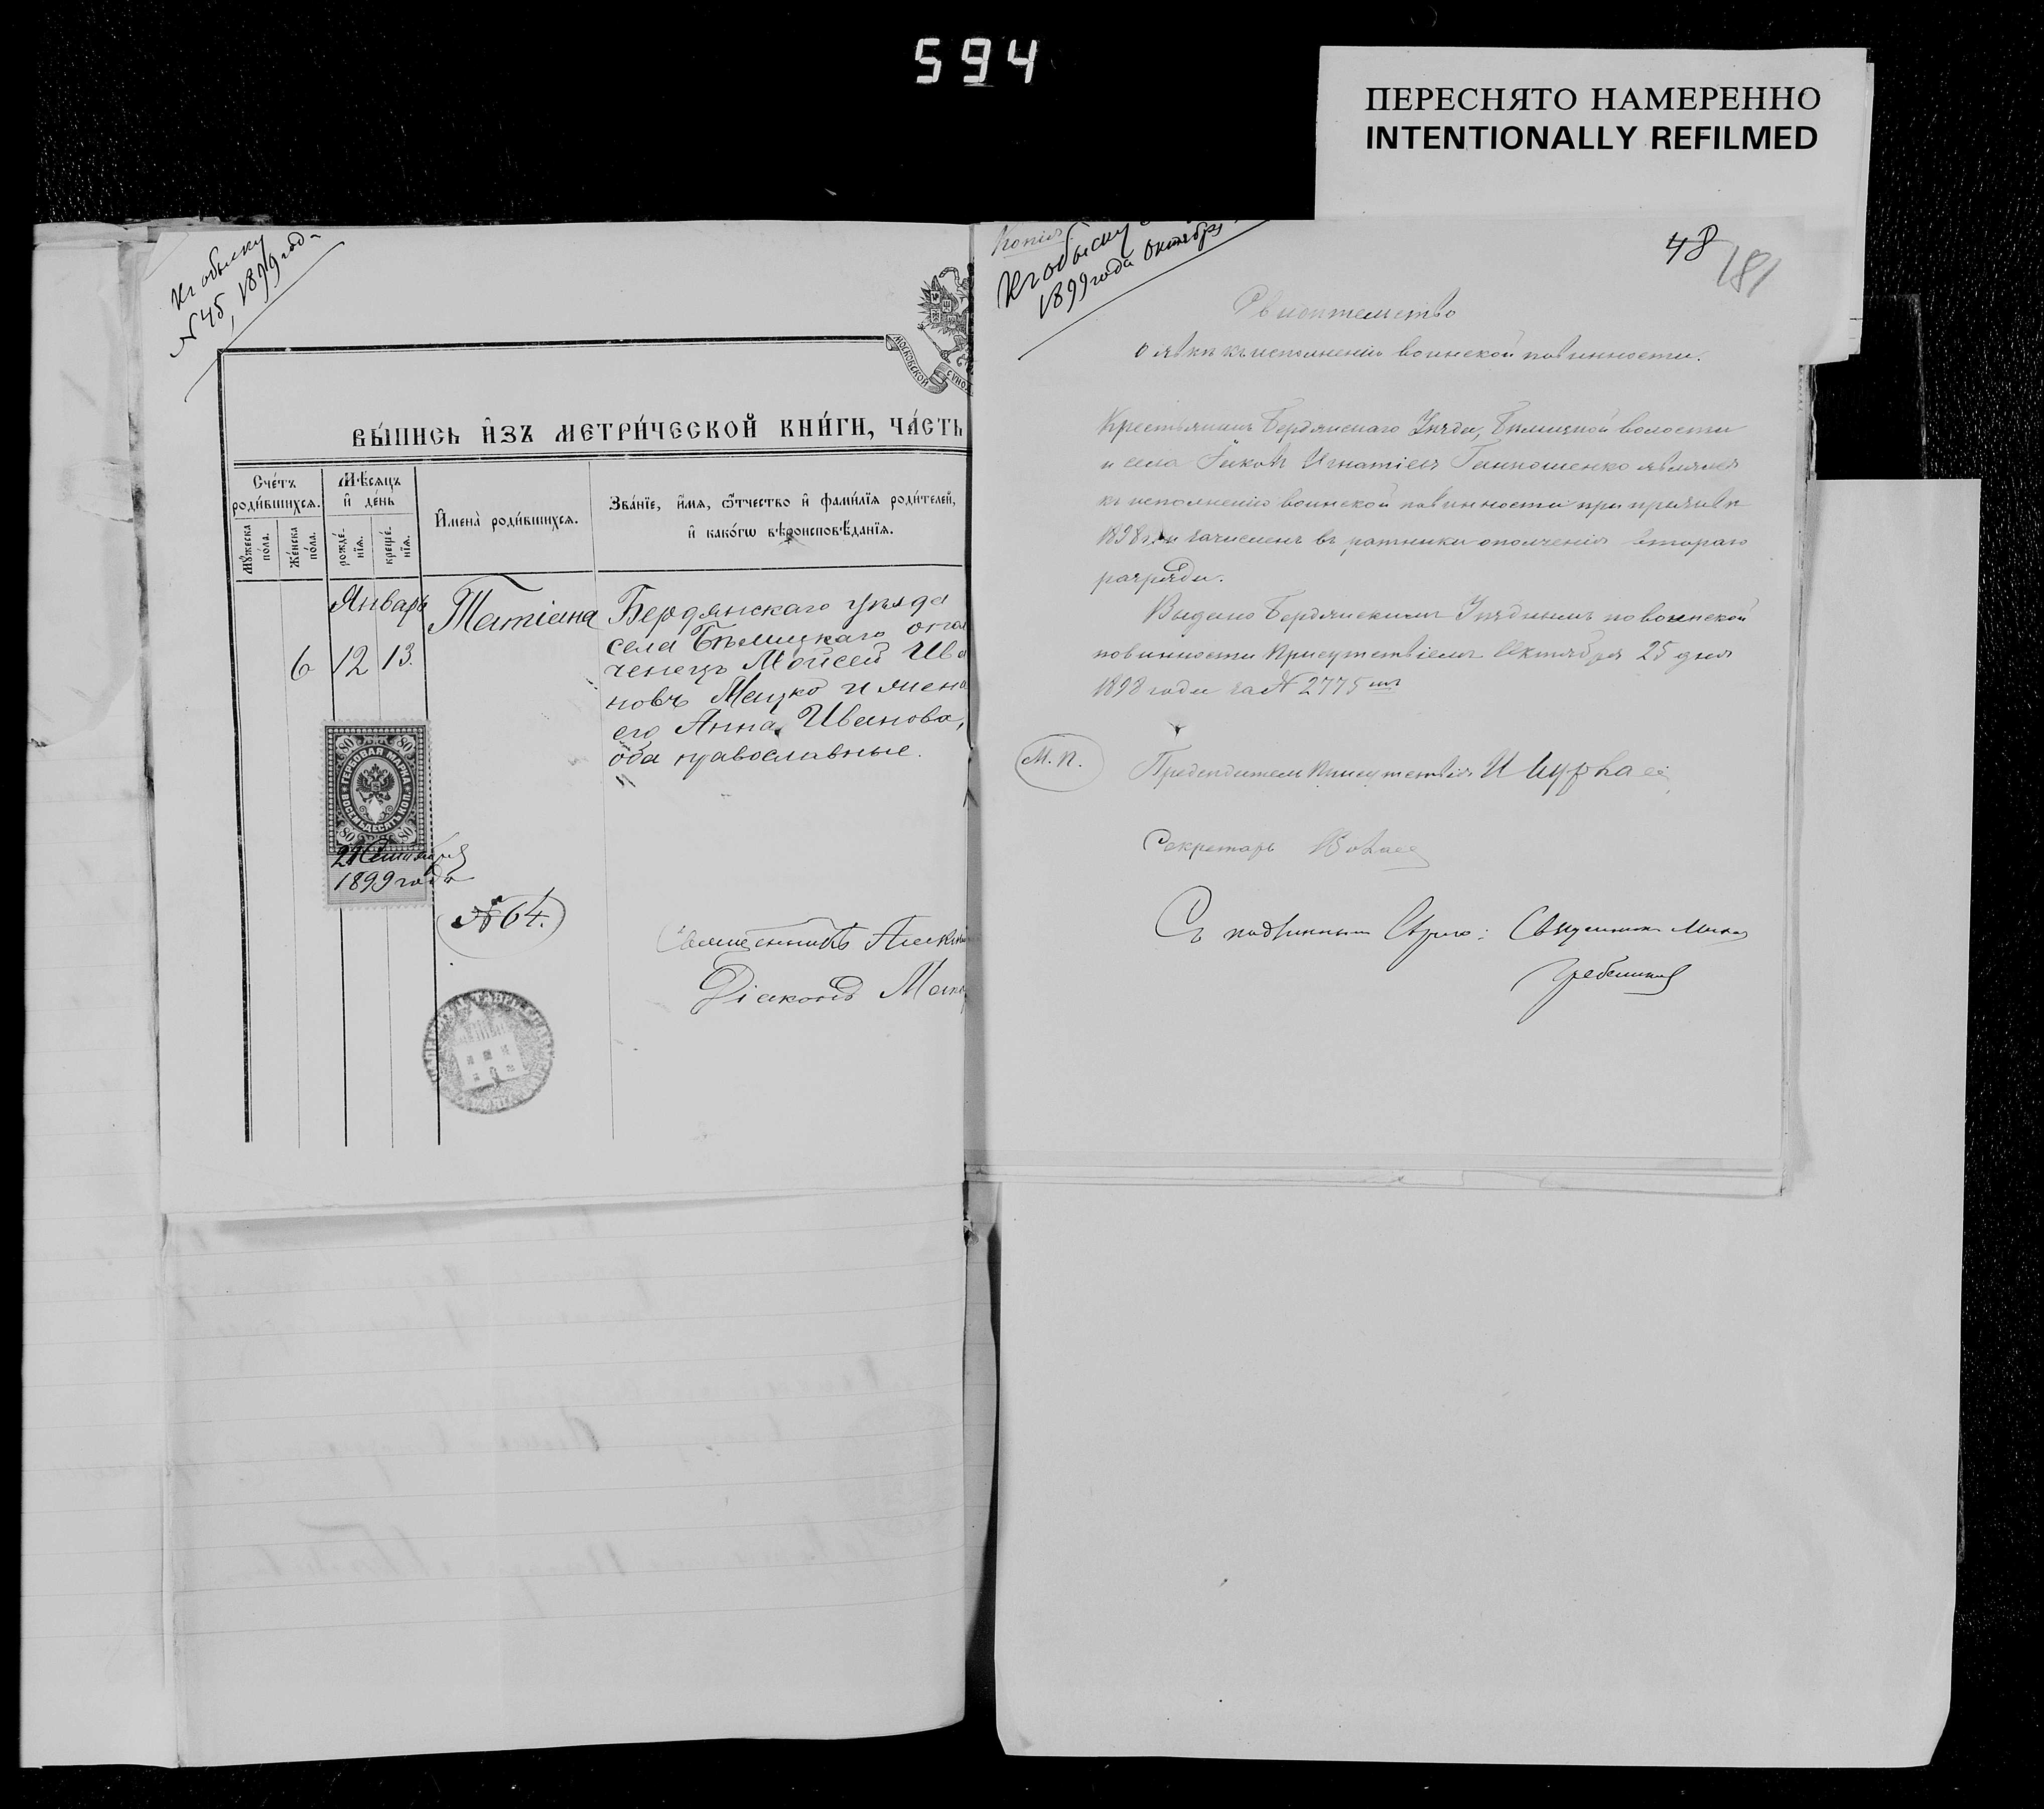 594
ПЕРЕСНЯТО НАМЕРЕННО
INTENTIONALLY REFILMED
Къ обыску
№ 45, 1899 года
МОСКОВСКОЙ
СѴНОД
ВЫ́ПИСЬ И҆ЗЪ МЕТРИ́ЧЕСКОЙ КНИ́ГИ, ЧА́СТЬ
Сче́тъ роди́вшихся.
Мꙋ́жеска по́ла.
Же́нска по́ла.
Мѣ́сяцъ и҆ де́нь
рожде́нїя.
креще́нїя.
И҆мена̀ роди́вшихся.
Зва́нїе, и҆́мя, ѻ҆́тчество и҆ фами́лїя роди́телей,
и҆ како́гѡ вѣроисповѣ́данїя.
Январь
6
12
13.
Татіана
Бердянскаго уѣзда
села Бѣлицкаго
Моисей Ива
новъ Мацко и жена
его Анна Иванова,
оба православные.
80 80
ГЕРБОВАЯ МАРКА
ВОСЕМЬДЕСЯТЪ КОП.
80 80
Сентября
1899 года
№ 64.
Священникъ
Діаконъ
Копія.
Къ обыску
1899 года Октября
48
181
Свидѣтельство
о явкѣ къ исполненію воинской повинности.
Крестьянинъ Бердянскаго Уѣзда, Бѣлицкой волости
и села Яковъ Игнатіевъ являлся
къ исполненію воинской повинности при призывѣ
1898 г. и зачисленъ въ ратники ополченія втораго
разряда.
Выдано Бердянскимъ Уѣзднымъ по воинской
повинности Присутствіемъ Октября 25 дня
1898 года за № 2775
М. П.
Предсѣдатель Присутствія
Секретарь
Съ подлиннымъ вѣрно: Священникъ